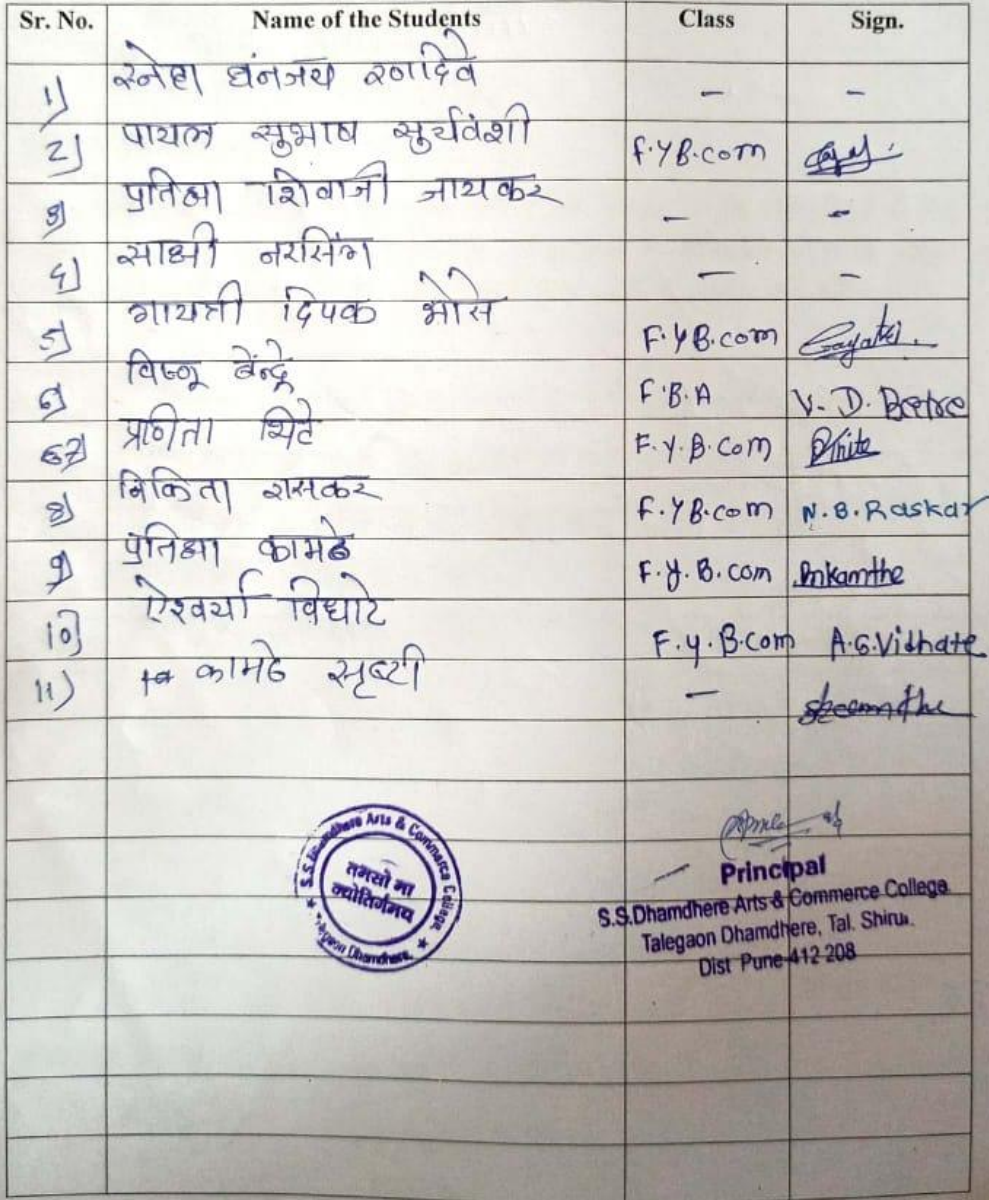 Sr. No. Name of the Students Class Sign.
1) स्नेहा धंनजय रणदिवे - -
2) पायल सुभाष सुर्यवंशी F.Y B.com
3) प्रतिक्षा शिवाजी जायकर - -
4) साक्षी नरसिंग - -
5) गायत्री दिपक भोस F.Y B.com Gayatri.
6) विष्णू बेंद्रे F.B.A V. D. Bendre
7) प्रणिता थिटे F.Y.B.com Thite
8) निकिता रासकर F.Y B.com N.B.Raskar
9) प्रतिक्षा कामठे F.Y.B.com Pnkamthe
10) ऐश्वर्या विधाटे F.Y.B.com A.G.Vidhate
11) कामठे सृष्टी -
S.S.Dhamdhere Arts & Commerce College
तमसो मा
ज्योतिर्गमय
Talegaon Dhamdhere.
Principal
S.S.Dhamdhere Arts & Commerce College
Talegaon Dhamdhere, Tal. Shirur.
Dist Pune-412 208